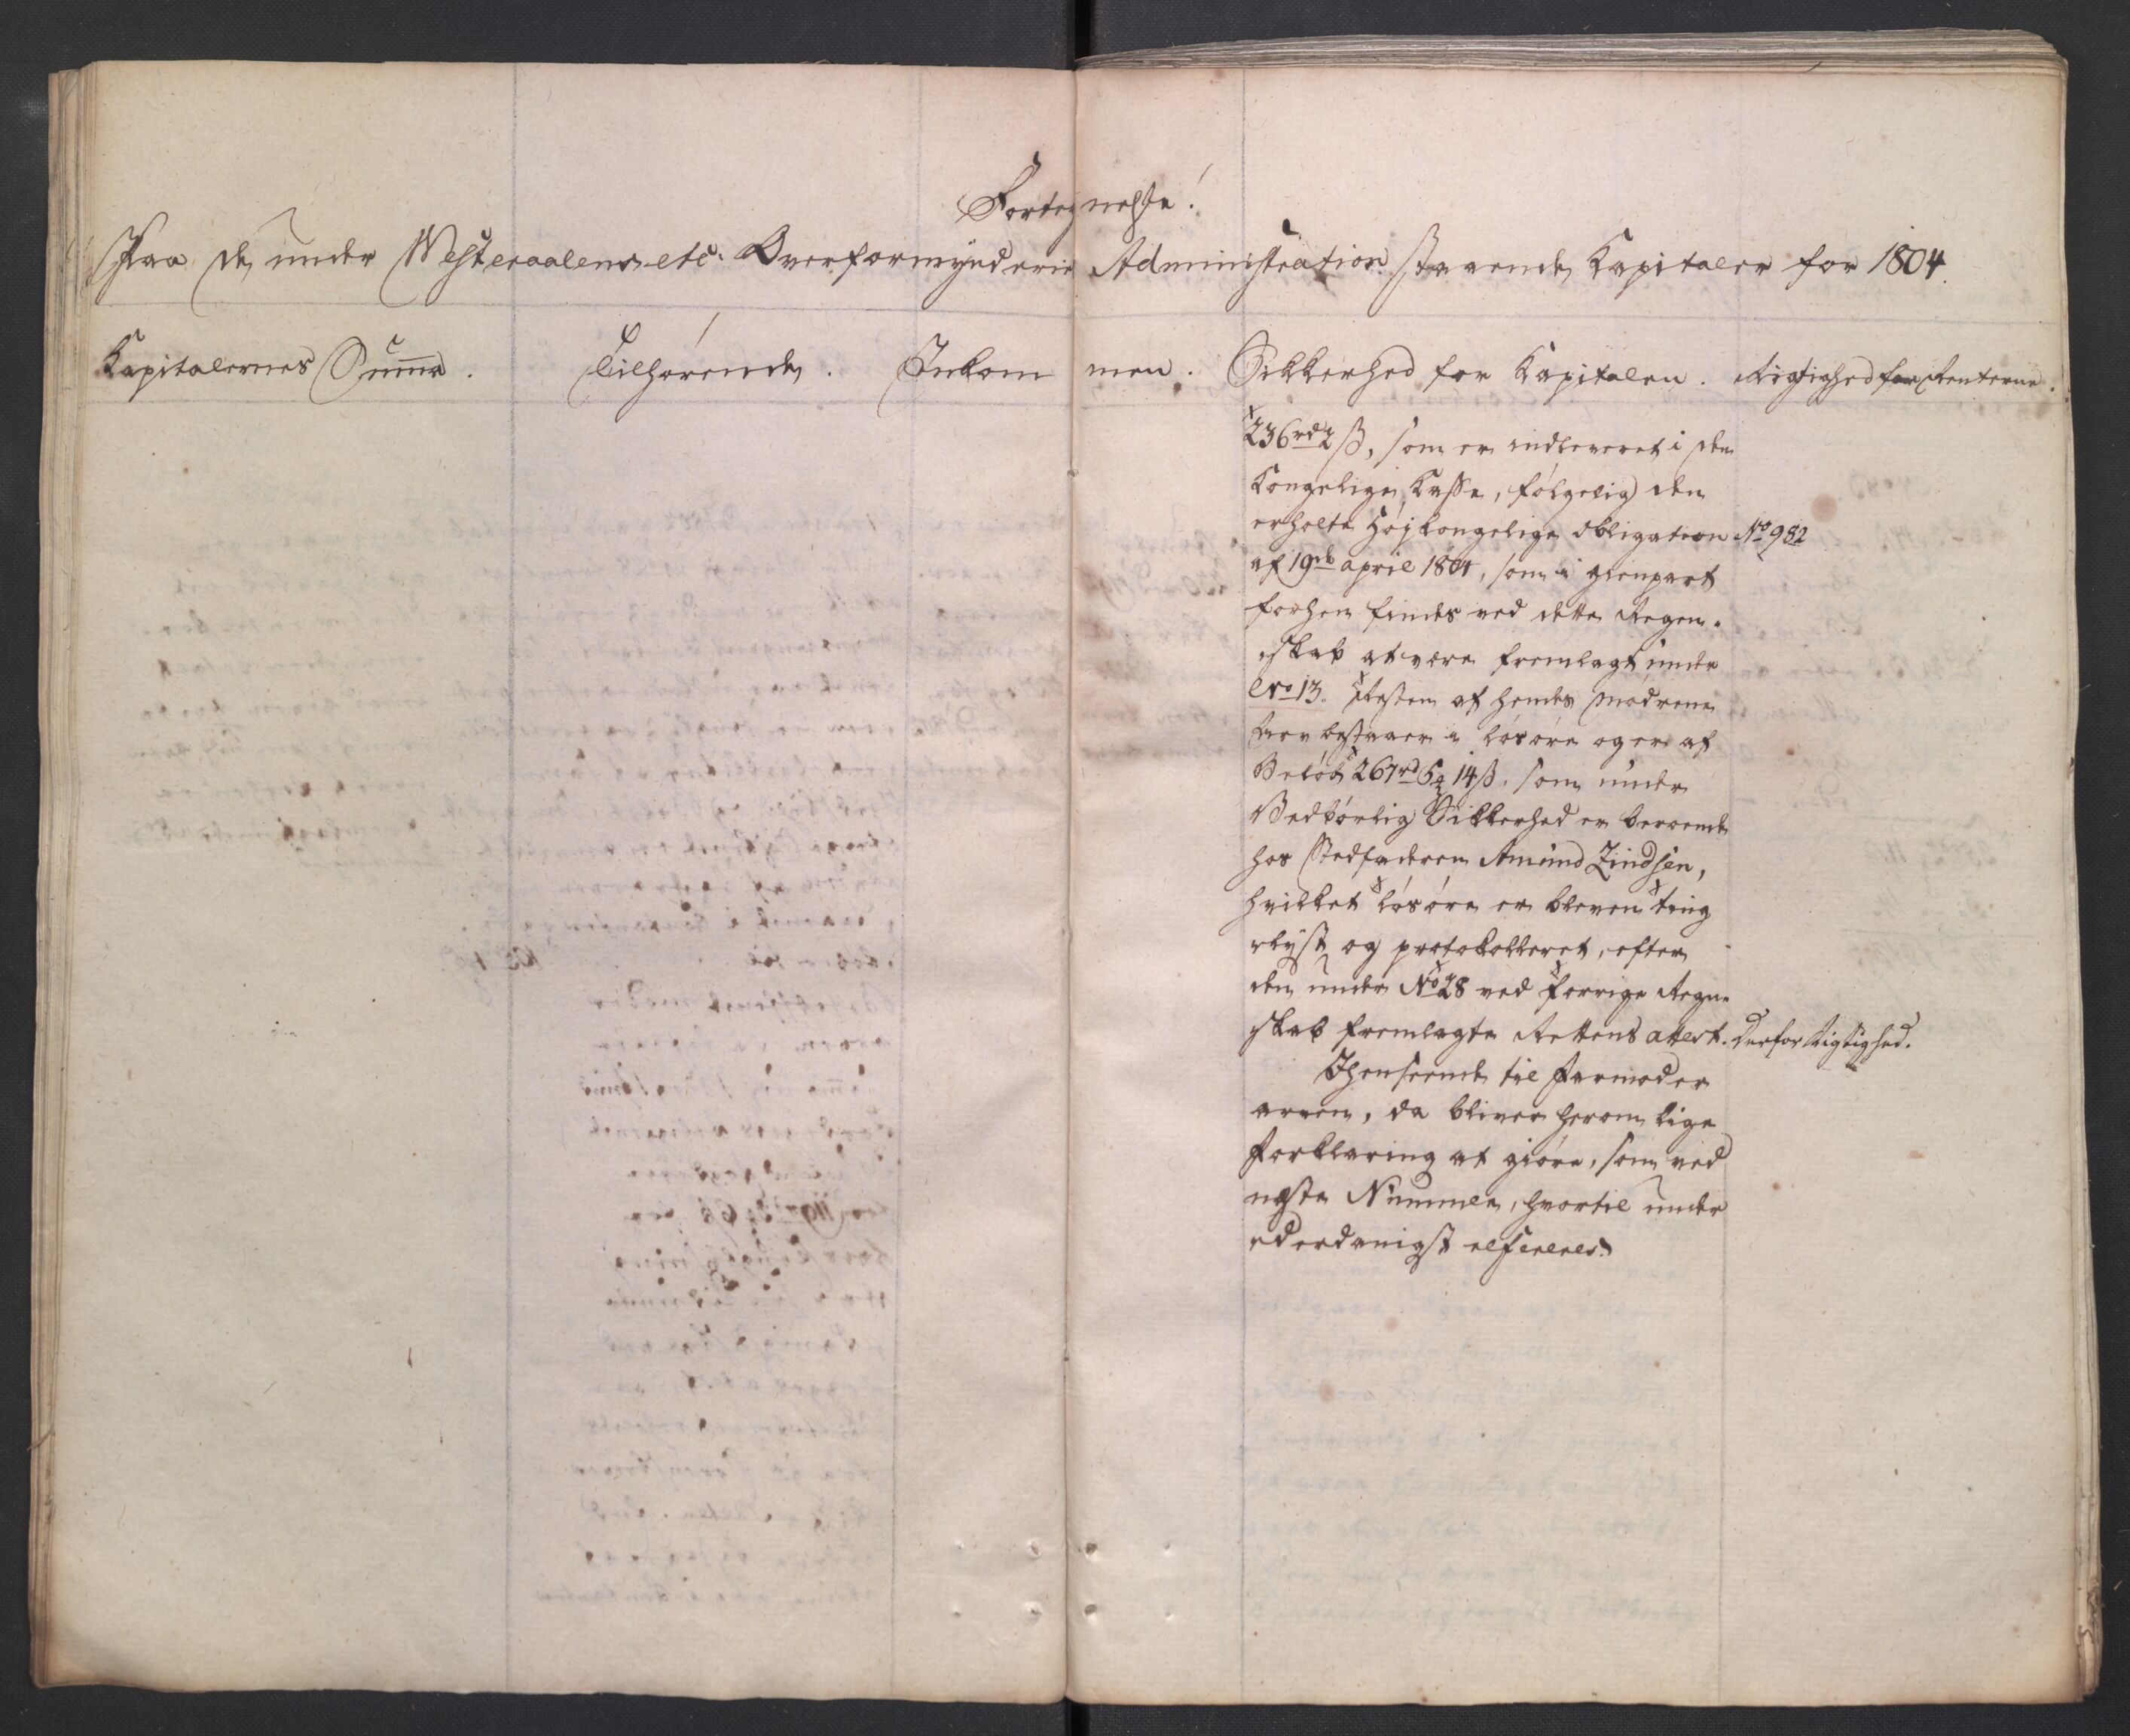 Fortegnelse!
Paa de under Westeraalens etc. Overformynderie Administration staaende Kapitaler for 1804.
Kapitalernes Summa. Tilhørende. Inkommen. Sikkerhed for Kapitalen. Rigtighed for Renterne.
236 rd 2 ß, som er indleveret i den
Kongelige Kasse, følgelig den
erholte Høj kongelige Obligation No 982
af 19de april 1804, som i gienpart
forhen findes ved dette Regen-
skab at være fremlagt under
No 13. Resten af hendes mødrene
Arv bestaaer i løsøre og er af
Beløb 267 rd 5 14 ß. som under
Bedbørlig Sikkerhed er beroende
hos Stedfaderen Amund Zindsen,
hvilket løsøre er bleven ting
lyst og protokolleret, efter
den under No 28 ved forrige Regn-
skab fremlagte Rettens attest. Derfor Rigtighed.
Ihenseende til Farmoder
arven, da bliver herom lige
forklaring at giøre, som ved
neste Nummer, hvortil under
ederdanigst refereres.